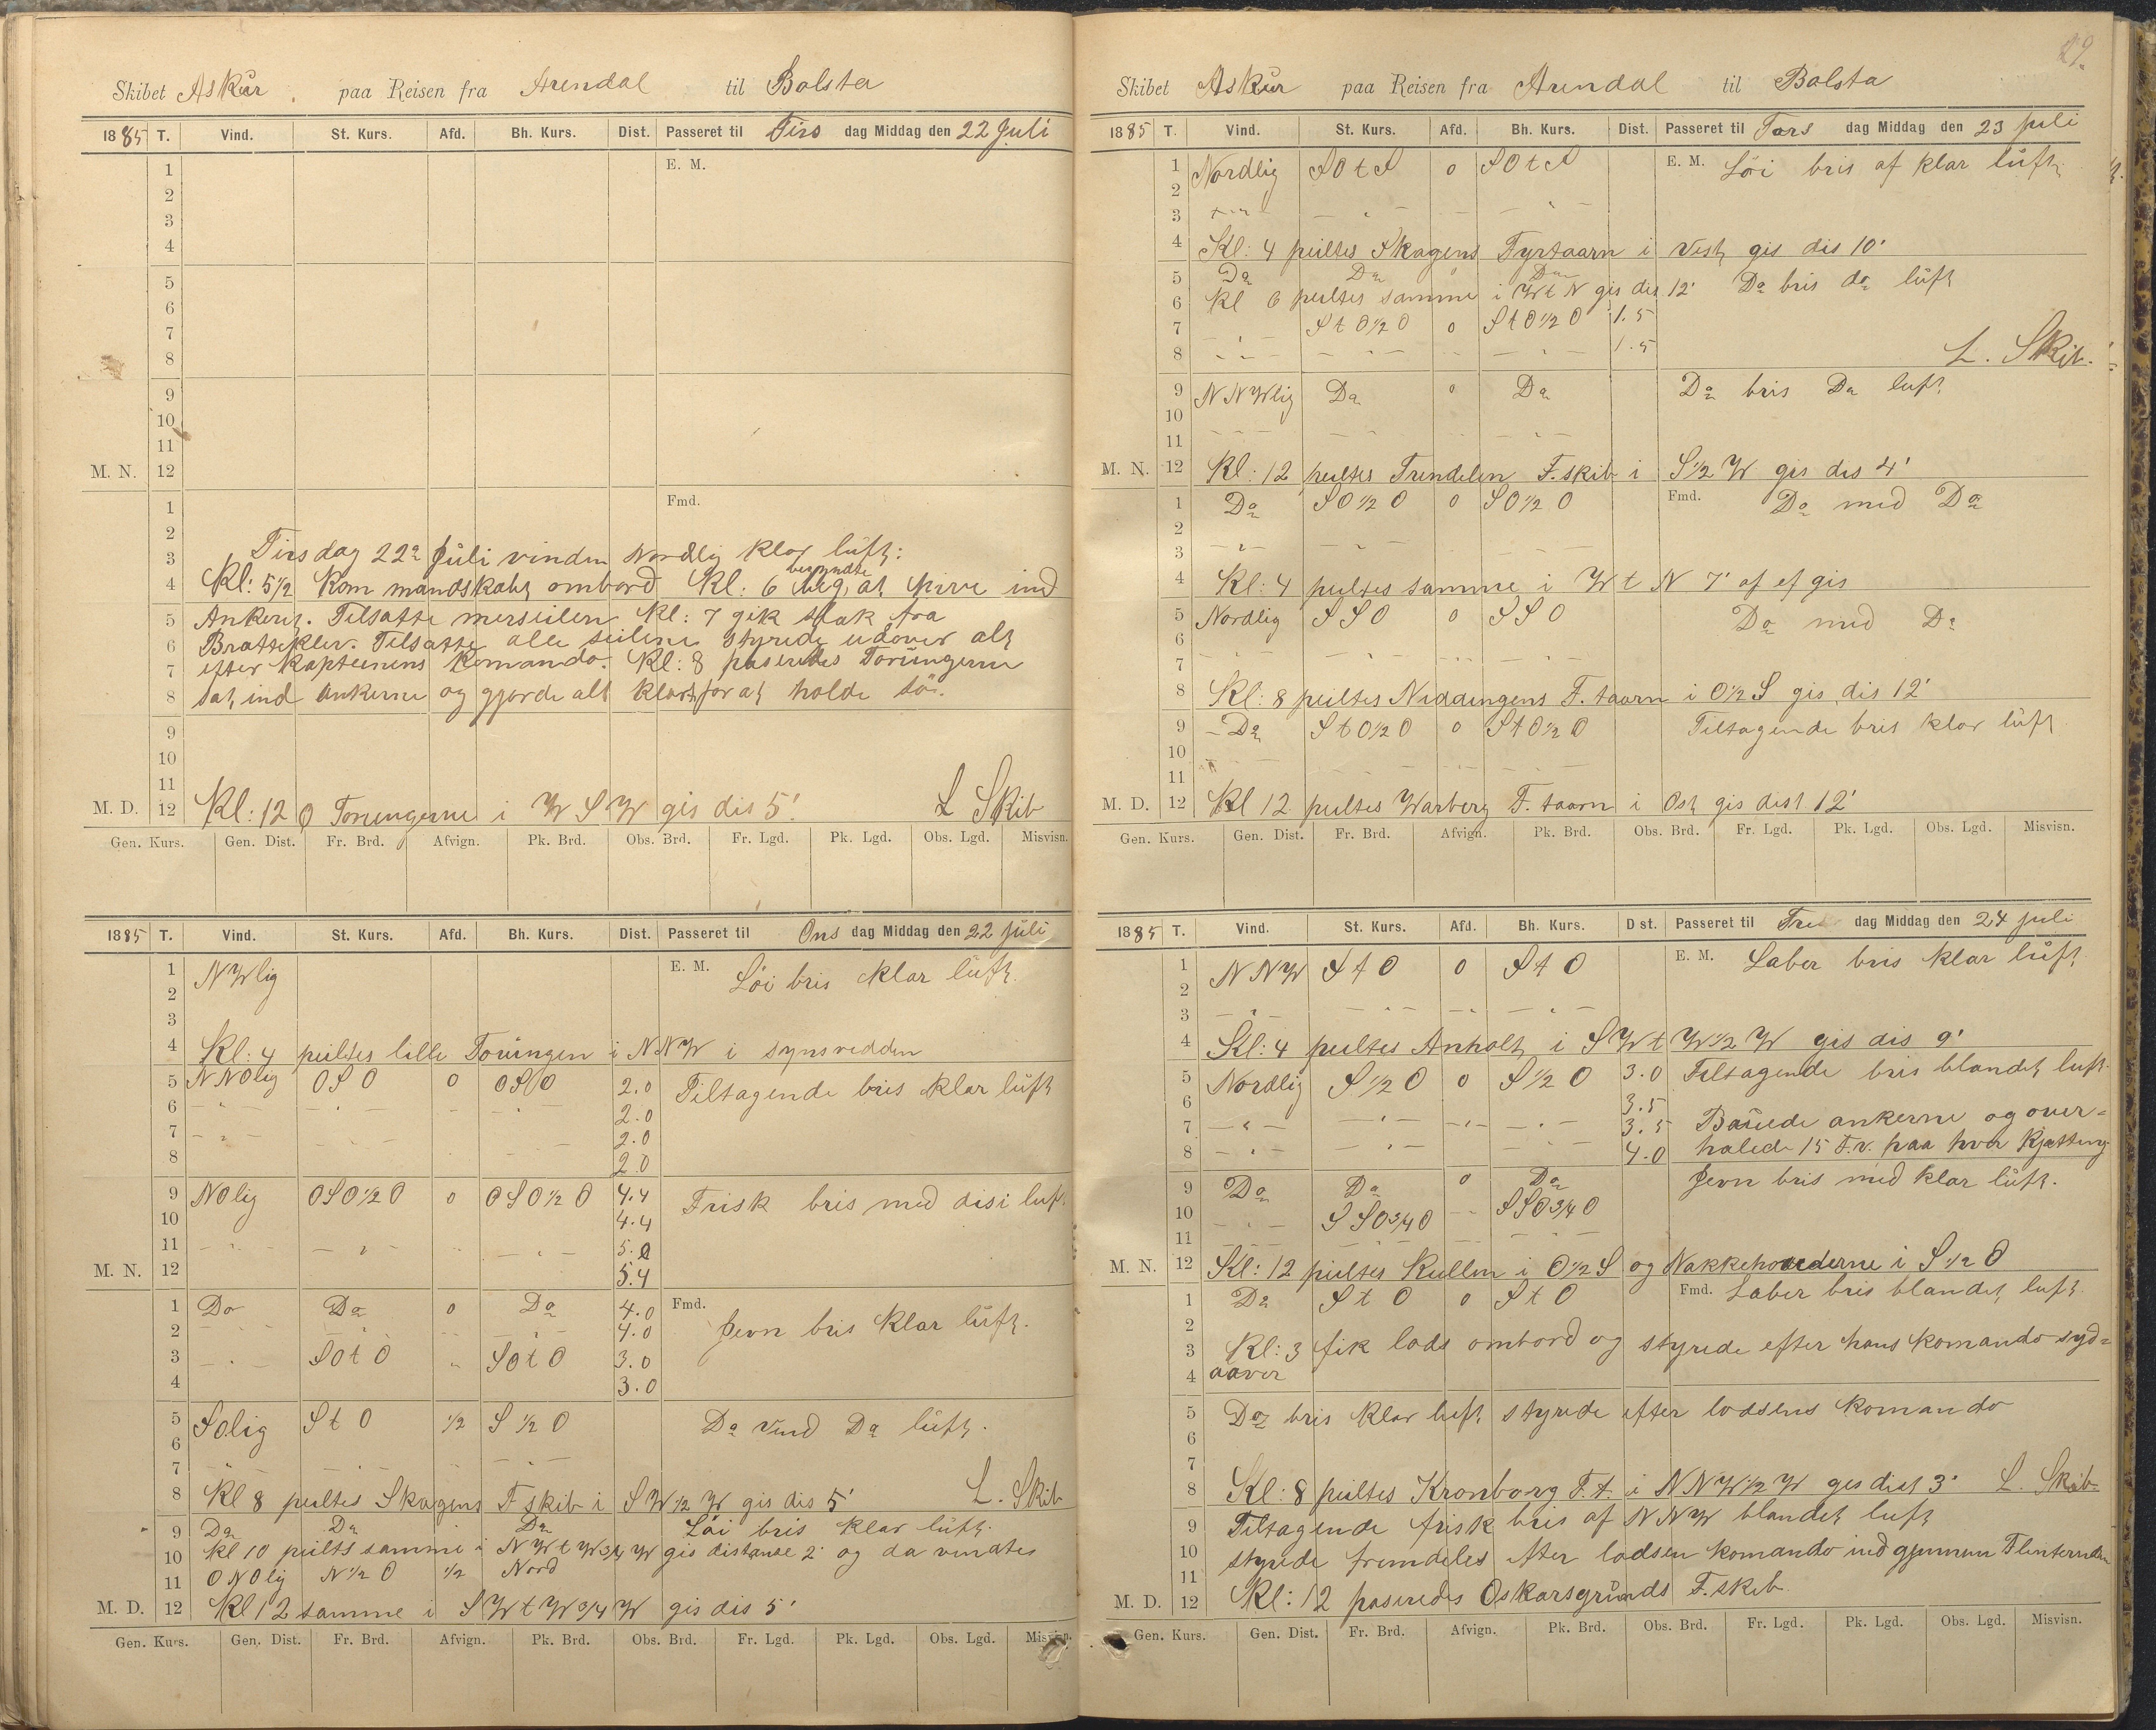 Skibet Askur paa Reisen fra Arendal til Bolsta
1885 T. Vind. St. Kurs. Afd. Bh. Kurs. Dist. Passeret til Tirs dag Middag den 22 Juli
1 E. M.
2
3
4
5
6
7
8
9
10
11
M. N. 12
1 Fmd.
2 Tirsdag 22de Juli vinden Nordlig klar luft:
3
begyndte
4 Kl: 5½ kom mandskabt ombord Kl: 6 beg, at hive ind
5 Ankerit. Tilsatte merseilen Kl: 7 gik slak fra
6 Brattekler. Tilsatte alle seilene styrede udover alt
7 efter kapteinens komando. Kl: 8 paseredes Torungerne
8 sat ind ankerne og gjorde alt klart for at holde sö.
9
10
11
M. D. 12 Kl: 12 O Torungerne i W S W gis dis 5' L Skib
Gen. Kurs. Gen. Dist. Fr. Brd. Afvign. Pk. Brd. Obs. Brd. Fr. Lgd. Pk. Lgd. Obs. Lgd. Misvisn.
1885 T. Vind. St. Kurs. Afd. Bh. Kurs. Dist. Passeret til Ons dag Middag den 22 juli
1 NWlig E. M. Löi bris klar luft.
2
3
4 Kl: 4 peiltes lille Torungen i NNW i synsvedden
5 NNOlig OSO 0 OSO 2.0 Tiltagende bris klar luft
6 - " - - " - - - " - 2.0
7 - " - - " - - 2.0
8 2.0
9 NOlig OSO½O 0 OSO½O 4.4 Frisk bris med disi luft.
10 4.4
11 - " - - " - - " - 5.0
M. N. 12 5.4
1 Do Do 0 Do 4.0 Fmd. Jevn bris klar luft.
2 - " - - " - - " - 4.0
3 - " - SOtO " SOtO 3.0
4 3.0
5 SOlig StO ½ S½O Do vind Do luft.
6
7 - " - - " - - " -
8 Kl 8 peiltes Skagens F. skib i SW½W gis dis 5' L. Skib
9 Do Do Do Löi bris klar luft.
10 Kl 10 peilts samme i NWtW¾W gis distanse 2' og da vendtes
11 ONOlig N½O ½ Nord
M. D. 12 Kl 12 samme i SWtW¾W gis dis 5'
Gen. Kurs. Gen. Dist. Fr. Brd. Afvign. Pk. Brd. Obs. Brd. Fr. Lgd. Pk. Lgd. Obs. Lgd. Misvisn.
29.
Skibet Askur paa Reisen fra Arendal til Bolsta
1885 T. Vind. St. Kurs. Afd. Bh. Kurs. Dist. Passeret til Tors dag Middag den 23 juli
1 Nordlig SOtS 0 SOtS E. M. Löi bris af klar luft.
2
3 - " - - " - - - " -
4 Kl: 4 peiltes Skagens Fyrtaarn i Vest gis dis 10'
5 Do Do 0 Do
6 Kl 6 peiltes samme i WtN gis dis 12' Do bris do luft
7 StO½O 0 StO½O 1.5
8 - " - - " - - - " - 1.5 L. Skib.
9 NNWlig Do 0 Do Do bris Do luft
10
11 - - - - " - - - " -
M. N. 12 Kl: 12 peiltes Trindelen F. skib i S½W gis dis 4'
1 Do SO½O 0 SO½O Fmd. Do med Do
2
3 - " - - " -
4 Kl: 4 peiltes samme i WtN 7' af ef gis
5 Nordlig SSO 0 SSO Do med Do
6
7
8 Kl: 8 peiltes Niddingens F. taarn i O½S gis dis 12'
9 - Do StO½O 0 StO½O Tiltagende bris klar luft
10
11
M. D. 12 Kl 12 peiltes Warberg F. taarn i Ost gis dist 12'
Gen. Kurs. Gen. Dist. Fr. Brd. Afvign. Pk. Brd. Obs. Brd. Fr. Lgd. Pk. Lgd. Obs. Lgd. Misvisn.
1885 T. Vind. St. Kurs. Afd. Bh. Kurs. Dist. Passeret til Fre dag Middag den 24 juli
1 NNW StO 0 StO E. M. Laber bris klar luft
2
3 - " - - " - - - " -
4 Kl: 4 peiltes Anholt i SWtW½W gis dis 9'
5 Nordlig S½O 0 S½O 3.0 Tiltagende bris blandet luft.
6 3.5
7 - " - - " - - " - - " - 3.5 Bauede ankerne og over=
8 - " - - " - - " - 4.0 halede 15 F.v. paa hver Kjætting
9 Do Do 0 Do Jevn bris med klar luft.
10 - " - SSO¾O - SSO¾O
11
M. N. 12 Kl: 12 peiltes Kullen i O½S og Nakkehovederne i S½O
1 Do StO 0 StO Fmd. Laber bris blandet luft.
2
3 Kl: 3 fik lods ombord og styrede efter hans komando syd=
4 aaver
5 Do bris klar luft styrede efter lodsens komando
6
7
8 Kl: 8 peiltes Kronborg F. t. i NNW½W gis dist 3' L. Skib
9 Tiltagende frisk bris af NNW blandet luft
10 styrede fremdeles efter lodsen komando ind gjennem Flinterenden
11
M. D. 12 Kl: 12 paseredes Oskarsgrunds F. skib.
Gen. Kurs. Gen. Dist. Fr. Brd. Afvign. Pk. Brd. Obs. Brd. Fr. Lgd. Pk. Lgd. Obs. Lgd. Misvisn.